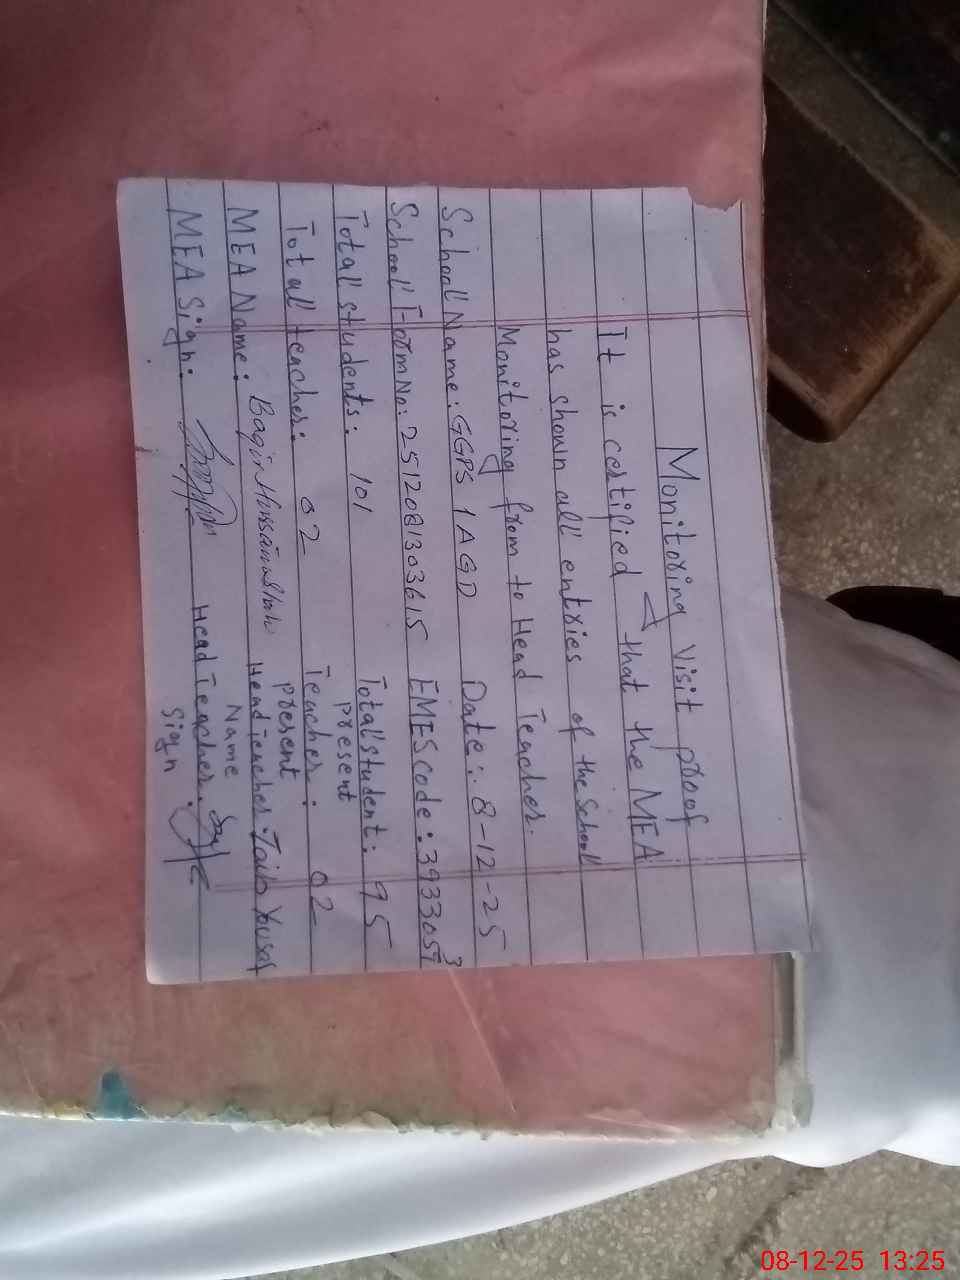 Monitoring visit proof
It is certified that the MEA
has shown all entries of the School
Monitoring from to Head Teacher.
School Name: GGPS 1AGD Date: 8-12-25
School Form No: 2512081303615 EMES code: 3933057 3
Total students: 101 Total student: 95
present
Total teacher: 02 Teacher: 02
present
MEA Name: Baqir Hussain Head Teacher: Yousaf
Name
MEA Sign: Head Teacher:
Sign
08-12-25 13:25